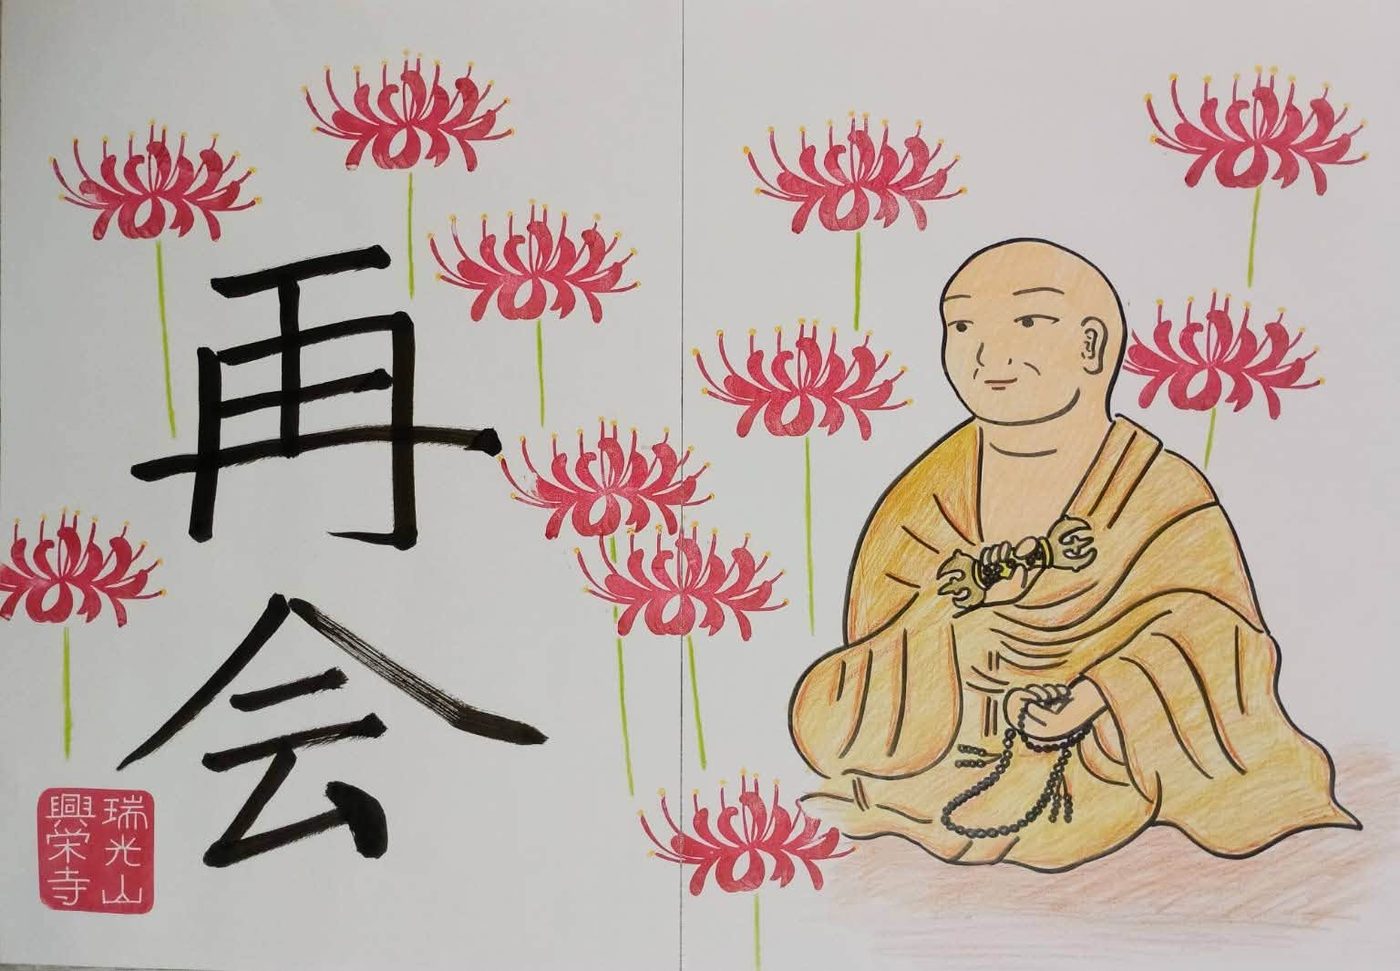 再会
瑞光山
興栄寺